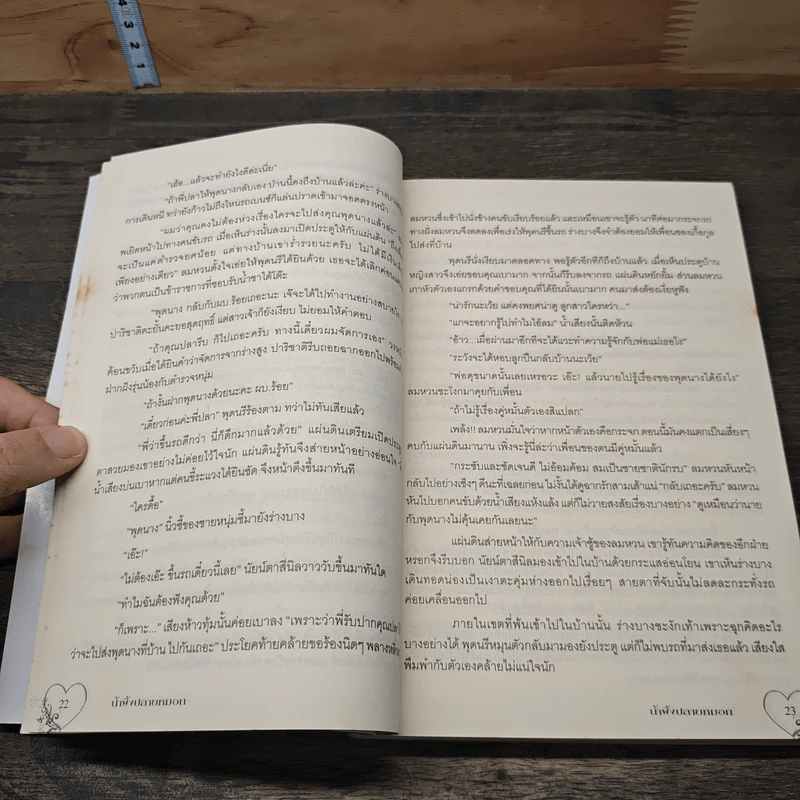 4
3
2
1
"เฮ้อ...แล้วจะทำยังไงดีล่ะเนี่ย"
"ถ้าพี่ปลาให้พุดนางกลับเอง ป่านนี้คงถึงบ้านแล้วล่ะค่ะ" ร่างบาง
การเดินหนี ทว่ายังก้าวไม่ถึงไหนรถเบนซ์ก็แล่นปราดเข้ามาจอดตรงหน้า
"ผมว่าคุณคงไม่ต้องห่วงเรื่องใครจะไปส่งคุณพุดนางแล้วล่ะ"
พเยิดหน้าไปทางคนขับรถ เมื่อเห็นร่างนั้นลงมาเปิดประตูให้กับแผ่นดิน "ถึงมัน
จะเป็นแค่ตำรวจยศน้อย แต่ทางบ้านเขาร่ำรวยนะครับ ไม่ได้มี
เพียงอย่างเดียว" ลมหวนตั้งใจเอ่ยให้พุดนรีได้ยินด้วย เธอจะได้เลิกค่อน
ว่าพวกตนเป็นข้าราชการที่ชอบรับน้ำชาใต้โต๊ะ
"พุดนาง กลับกับผบ.ร้อยเถอะนะ เจ๊จะได้ไปทำงานอย่างสบายใจ
ปาริชาติคะยั้นคะยอสุดฤทธิ์ แต่สาวเจ้าก็ยังเงียบ ไม่ยอมให้คำตอบ
"ถ้าคุณปลารีบ ก็ไปเถอะครับ ทางนี้เดี๋ยวผมจัดการเอง"
ค้อนขวับเมื่อได้ยินคำว่าจัดการจากร่างสูง ปาริชาติรีบถอยฉากออกไปพร้อม
ฝากฝังรุ่นน้องกับตำรวจหนุ่ม
"ถ้างั้นฝากพุดนางด้วยนะคะ ผบ.ร้อย"
"เดี๋ยวก่อนค่ะพี่ปลา" พุดนรีร้องตาม ทว่าไม่ทันเสียแล้ว
"พี่ว่าขึ้นรถดีกว่า นี่ก็ดึกมากแล้วด้วย" แผ่นดินเตรียมเปิดประตู
ตาสวยมองเขาอย่างไม่ค่อยไว้ใจนัก แผ่นดินรู้ทันจึงส่ายหน้าอย่างอ่อนใจ
น้ำเสียงบ่นเบาหากแต่คนขี้ระแวงได้ยินชัด จึงหน้าตึงขึ้นมาทันที
"ใครดื้อ"
"พุดนาง" นิ้วชี้ของชายหนุ่มชี้มายังร่างบาง
"เอ๊ะ!"
"ไม่ต้องเอ๊ะ ขึ้นรถเดี๋ยวนี้เลย" นัยน์ตาสีนิลวาววับขึ้นมาทันใด
"ทำไมฉันต้องฟังคุณด้วย"
"ก็เพราะ..." เสียงห้าวทุ้มนั้นค่อยเบาลง "เพราะว่าพี่รับปากคุณปลา
ว่าจะไปส่งพุดนางที่บ้าน ไปกันเถอะ" ประโยคท้ายคล้ายขอร้องนิดๆ พลาง
22
น้ำผึ้งปลายหมอก
ลมหวนซึ่งเข้าไปนั่งข้างคนขับเรียบร้อยแล้ว และเหมือนเขาจะรู้ตัว นาทีต่อมากระจกรถ
ทางฝั่งลมหวนจึงลดลงเพื่อเร่งให้พุดนรีขึ้นรถ ร่างบางจึงจำต้องยอมให้เพื่อนของเกื้อกูล
ไปส่งที่บ้าน
พุดนรีนั่งเงียบมาตลอดทาง พอรู้ตัวอีกทีก็ถึงบ้านแล้ว เมื่อเห็นประตูบ้าน
หญิงสาวจึงเอ่ยขอบคุณเบามาก จากนั้นก็รีบลงจากรถ แผ่นดินหยักยิ้ม ส่วนลมหวน
เกาหัวตัวเองแกรกด้วยคำขอบคุณที่ได้ยินนั้นเบามาก คนมาส่งต้องเงี่ยหูฟัง
"น่ารักนะเว้ย แต่คงพยศน่าดู ลูกสาวใครหว่า..."
"แกจะอยากรู้ไปทำไมไอ้ลม" น้ำเสียงนั้นติดห้วน
"อ้าว...เผื่อผ่านมาอีกทีจะได้แวะทำความรู้จักกับพ่อแม่เธอไง"
"ระวังจะได้หอบลูกปืนกลับบ้านนะเว้ย"
"พ่อดุขนาดนั้นเลยเหรอวะ เอ๊ะ! แล้วนายไปรู้เรื่องของพุดนางได้ยังไง"
ลมหวนชะโงกมาคุยกับเพื่อน
"ถ้าไม่รู้เรื่องคู่หมั้นตัวเองสิแปลก"
เพล้ง!! ลมหวนมั่นใจว่าหากหน้าตัวเองคือกระจก ตอนนี้มันคงแตกเป็นเสี่ยงๆ
คบกับแผ่นดินมานาน เพิ่งจะรู้นี่ล่ะว่าเพื่อนของตนมีคู่หมั้นแล้ว
"กระชับและชัดเจนดี ไม่อ้อมค้อม สมเป็นชายชาตินักรบ" ลมหวนหันหน้า
กลับไปอย่างเซ็งๆ ดีนะที่เฉลยก่อน ไม่งั้นได้ดูฉากรักสามเส้าแน่ "กลับเถอะครับ" ลมหวน
หันไปบอกคนขับด้วยน้ำเสียงแห้งแล้ง แต่ก็ไม่วายสงสัยเรื่องบางอย่าง "ดูเหมือนว่านาย
กับพุดนางไม่คุ้นเคยกันเลยนะ"
แผ่นดินส่ายหน้าให้กับความเจ้าชู้ของลมหวน เขารู้ทันความคิดของอีกฝ่าย
หรอกจึงรีบบอก นัยน์ตาสีนิลมองเข้าไปในบ้านด้วยกระแสอ่อนโยน เขาเห็นร่างบาง
เดินทอดน่องเป็นเงาตะคุ่มห่างออกไปเรื่อยๆ สายตาที่จับนั้นไม่ลดละกระทั่งรถ
ค่อยเคลื่อนออกไป
ภายในเขตที่พ้นเข้าไปในบ้านนั้น ร่างบางชะงักเท้าเพราะฉุกคิดอะไร
บางอย่างได้ พุดนรีหมุนตัวกลับมามองยังประตู แต่ก็ไม่พบรถที่มาส่งเธอแล้ว เสียงใส
พึมพำกับตัวเองคล้ายไม่แน่ใจนัก
น้ำผึ้งปลายหมอก
23